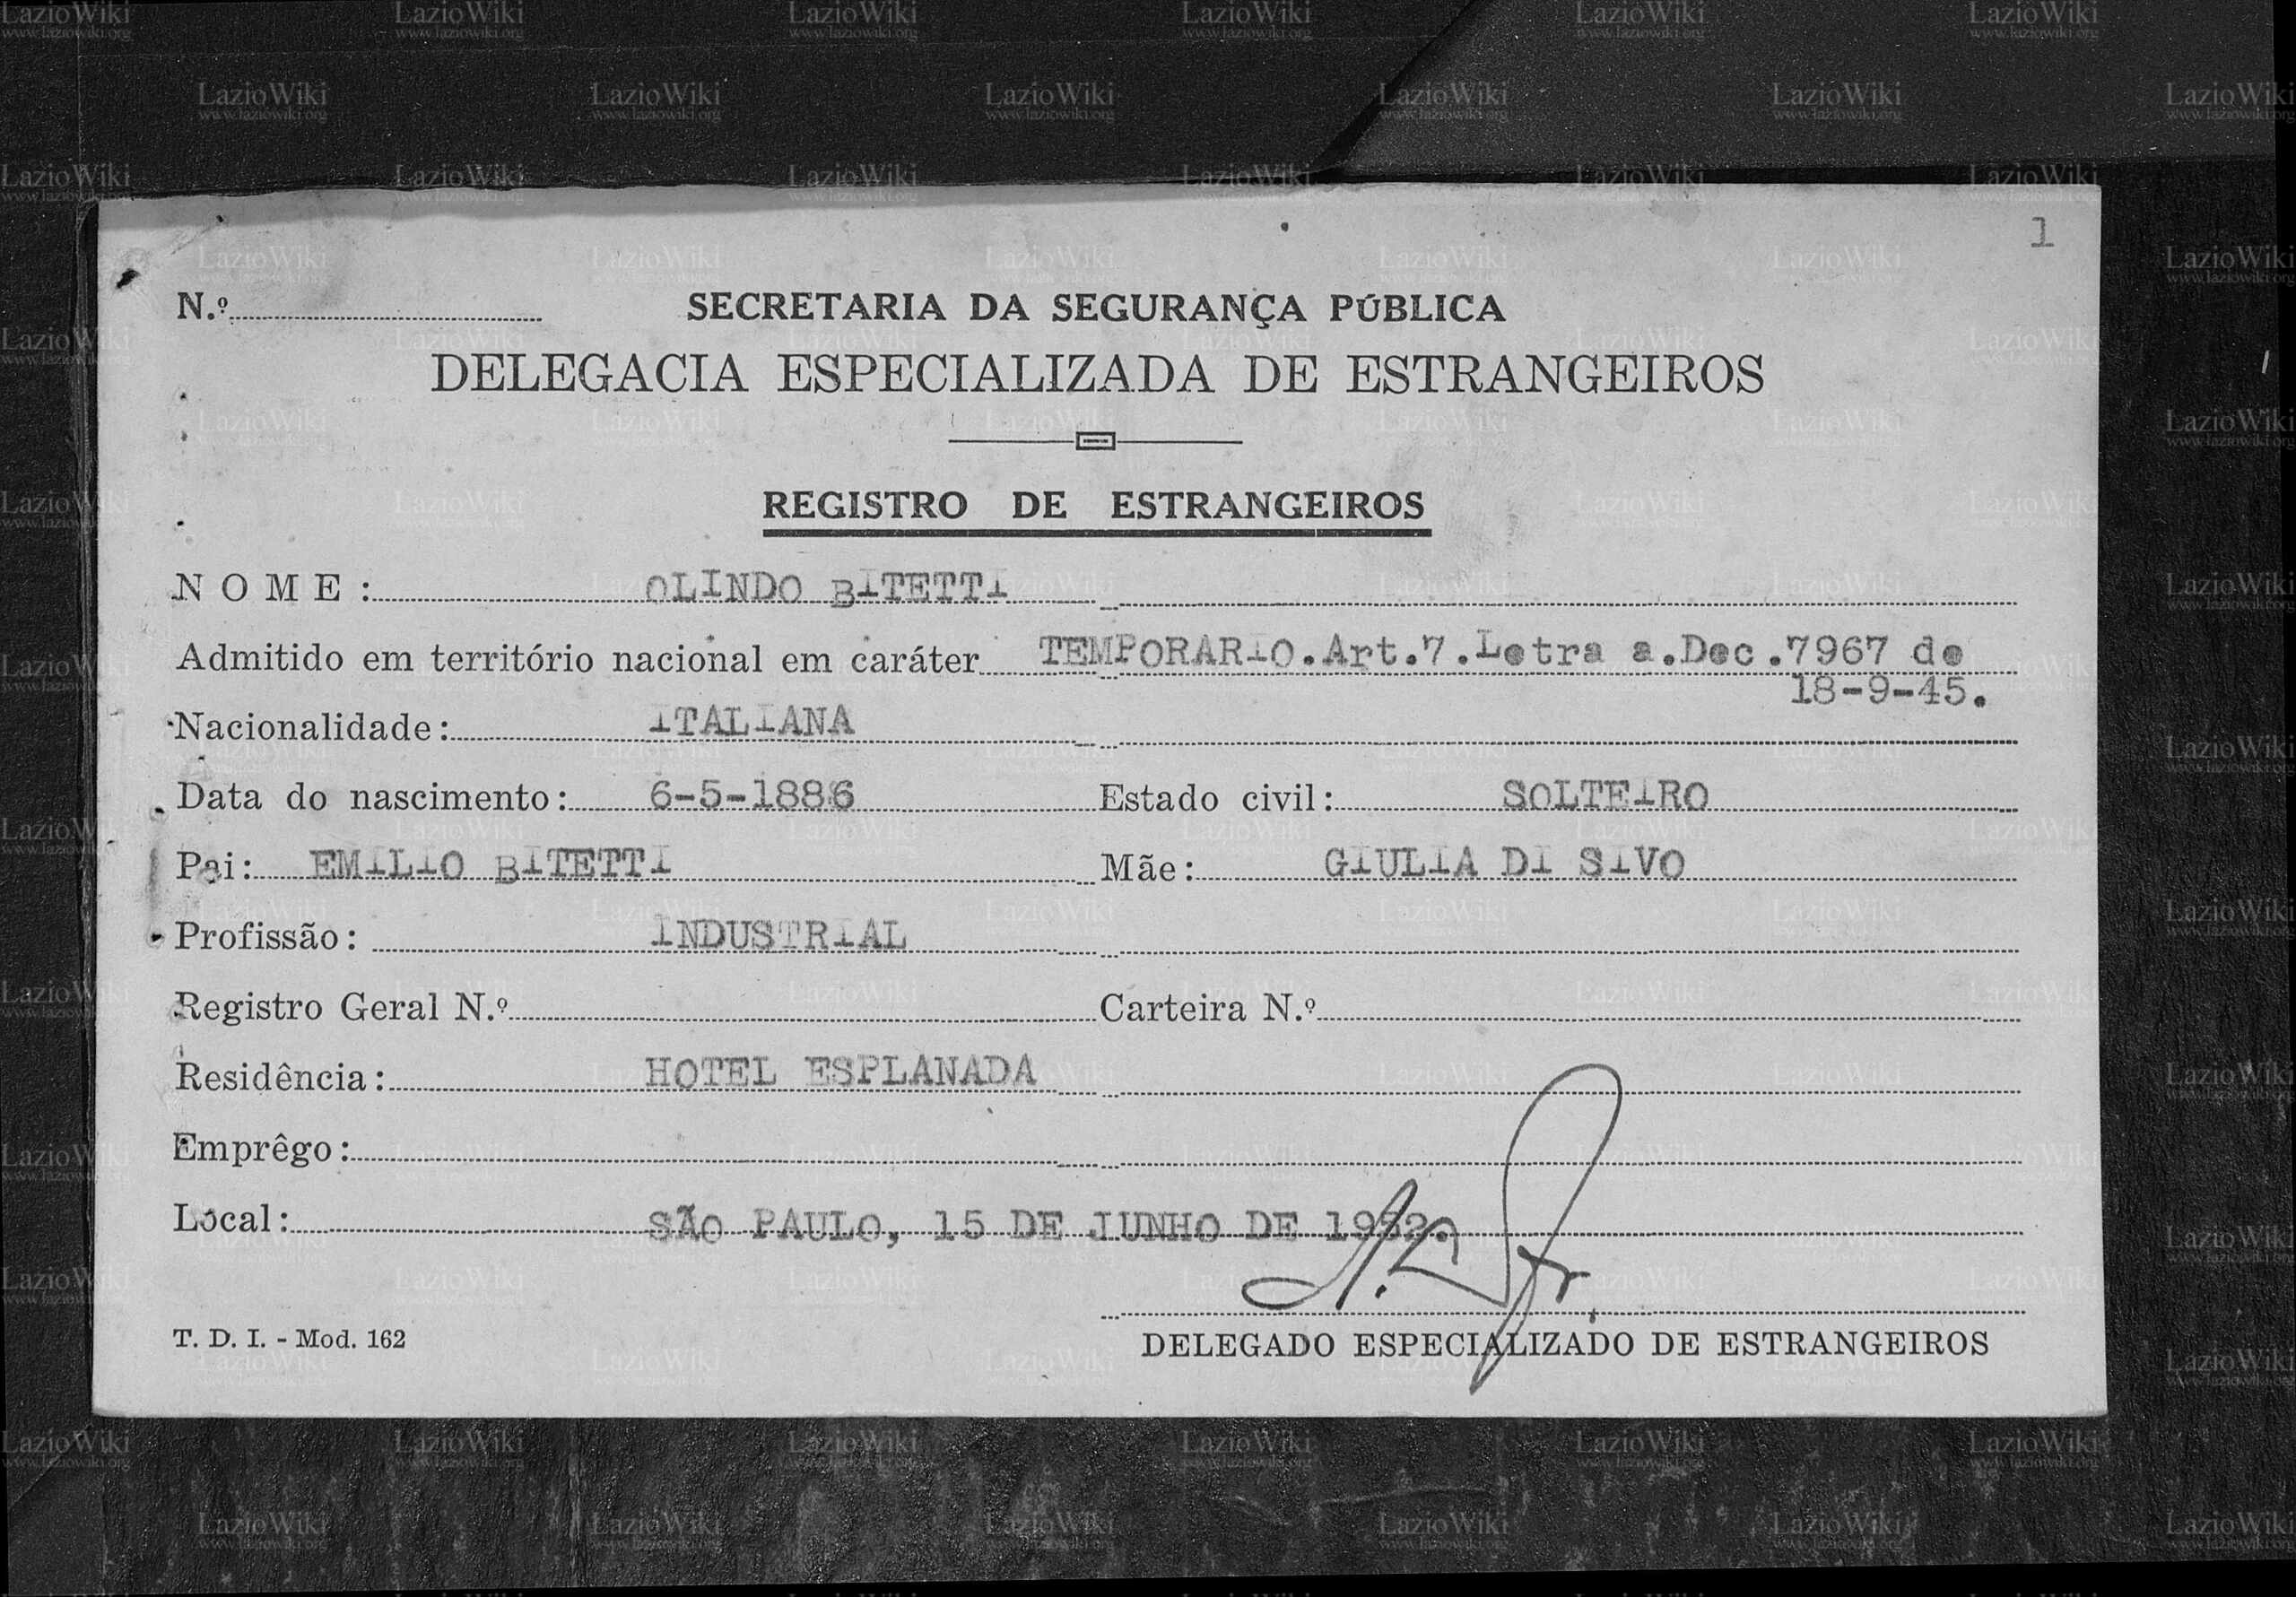 1
N.º
SECRETARIA DA SEGURANÇA PÚBLICA
DELEGACIA ESPECIALIZADA DE ESTRANGEIROS
REGISTRO DE ESTRANGEIROS
NOME: OLINDO BITETTI
Admitido em território nacional em caráter TEMPORARIO.Art.7.Letra a.Dec.7967 de
18-9-45.
Nacionalidade: ITALIANA
Data do nascimento: 6-5-1886 Estado civil: SOLTEIRO
Pai: EMILIO BITETTI Mãe: GIULIA DI SIVO
Profissão: INDUSTRIAL
Registro Geral N.º Carteira N.º
Residência: HOTEL ESPLANADA
Emprêgo:
Local: SÃO PAULO, 15 DE JUNHO DE 1952.
T. D. I. - Mod. 162
DELEGADO ESPECIALIZADO DE ESTRANGEIROS
LazioWiki
www.laziowiki.org